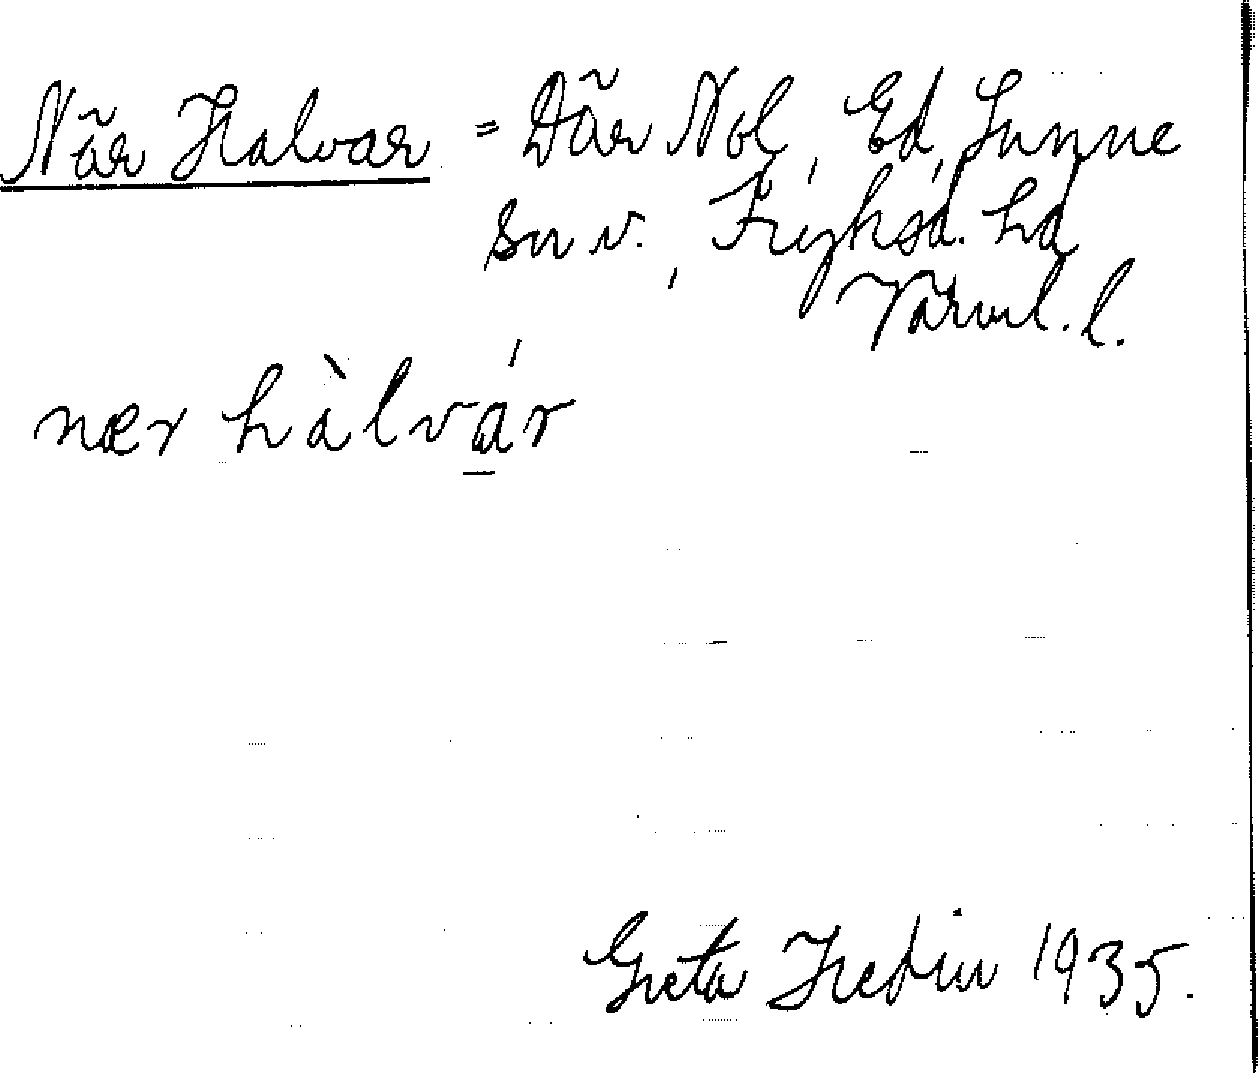 När Halvar = Där Nol, Ed, Sunne
sn v., Fryksd. hd
Värml. l.
nær hàlvár
Greta Hedin 1935.